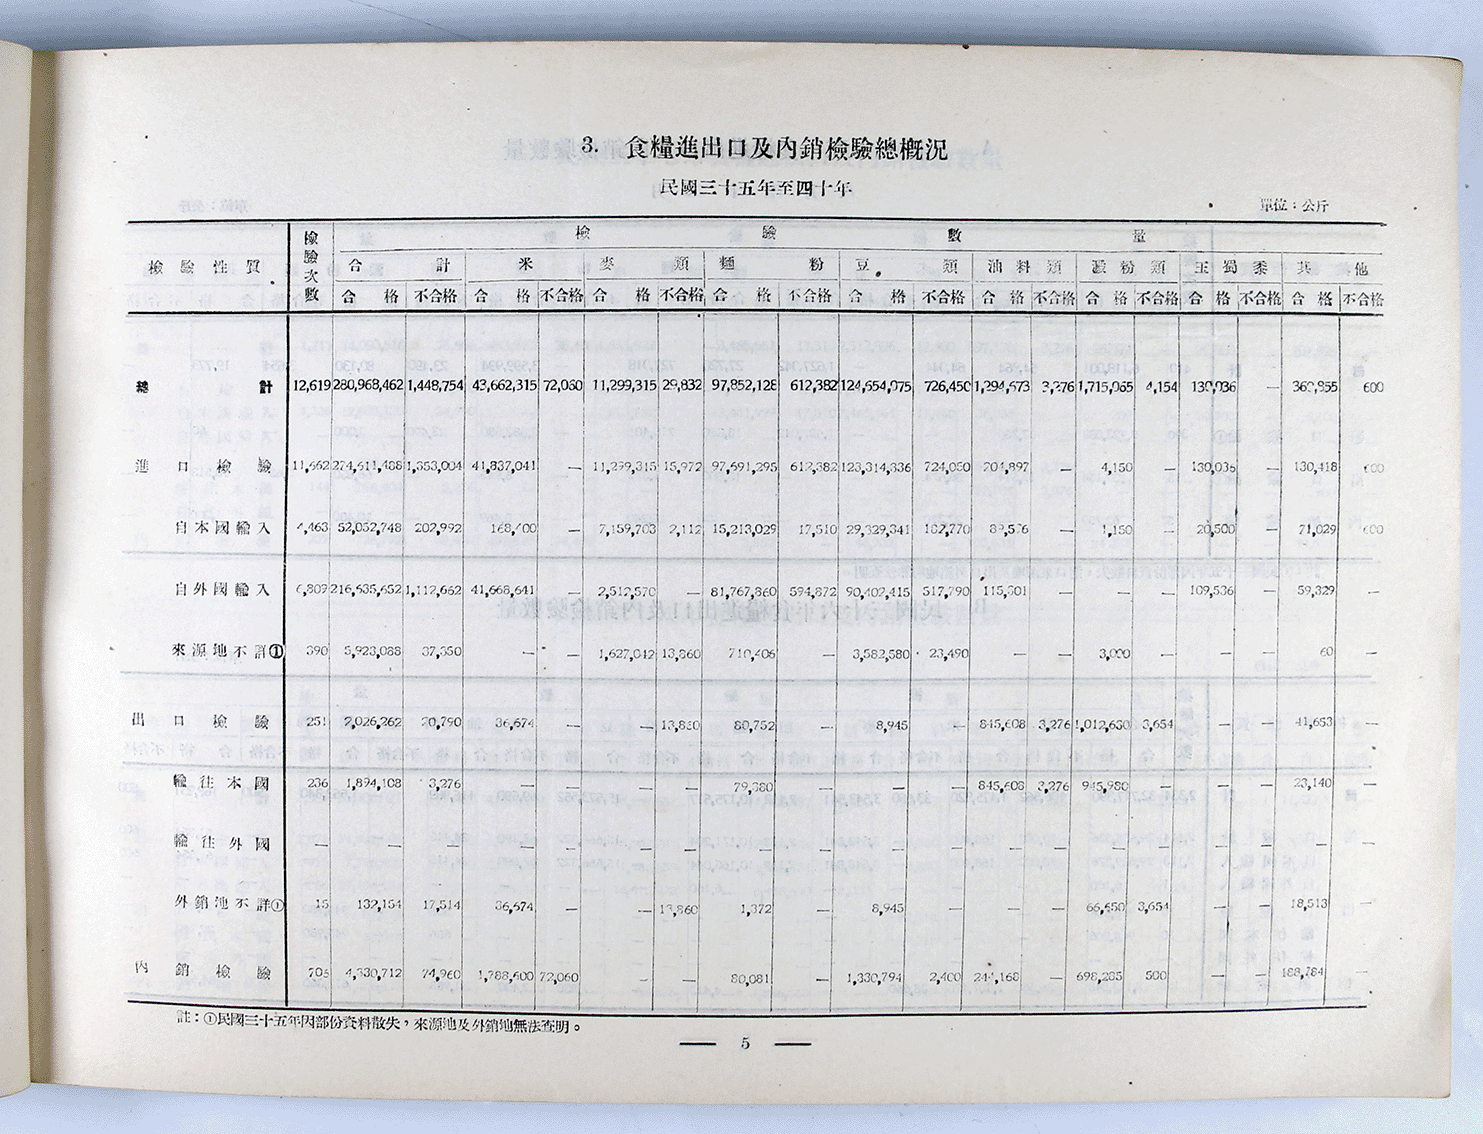 3. 食糧進出口及內銷檢驗總概況
民國三十五年至四十年
單位：公斤
檢驗性質 檢驗次數 檢驗數量
合計 米 麥類 麵粉 豆類 油料類 澱粉類 玉蜀黍 其他
合格 不合格 合格 不合格 合格 不合格 合格 不合格 合格 不合格 合格 不合格 合格 不合格 合格 不合格 合格 不合格
總計 12,619 280,968,462 1,448,754 43,662,315 72,060 11,299,315 29,832 97,852,128 612,382 124,654,075 726,450 1,294,673 3,276 1,715,065 4,154 130,036 — 600
進口檢驗 11,662 274,611,488 1,353,004 41,837,041 — 11,299,315 15,972 97,691,295 612,382 123,314,336 724,050 204,897 — 4,150 — 130,036 — 130,418 600
自本國輸入 4,463 52,052,748 202,992 168,400 — 7,159,703 2,112 15,213,029 17,510 29,329,341 182,770 — 1,150 — 20,500 — 71,029 600
自外國輸入 6,809 216,635,652 1,112,662 41,668,641 — 2,512,570 — 81,767,860 594,872 90,402,415 517,790 — — — 109,536 — 59,329 —
來源地不詳① 390 5,923,088 37,350 — — 1,627,042 13,860 710,406 — 3,582,580 23,490 — — 3,000 — — — 60 —
出口檢驗 251 2,026,262 20,790 36,674 — — 13,860 80,752 — 8,945 — 845,608 3,276 1,012,630 3,654 — — 41,653 —
輸往本國 236 1,894,108 3,276 — — — — 79,380 — — — 845,608 3,276 945,980 — — — 23,140 —
輸往外國 — — — — — — — — — — — — — — — — — — —
外銷地不詳① 15 132,154 17,514 36,674 — — 13,860 1,372 — 8,945 — — — 66,650 3,654 — — 18,513 —
內銷檢驗 706 4,330,712 74,960 1,788,600 72,060 — — 80,081 — 1,330,794 2,400 244,168 — 698,285 500 — — 188,784 —
註：①民國三十五年因部份資料散失，來源地及外銷地無法查明。
— 5 —